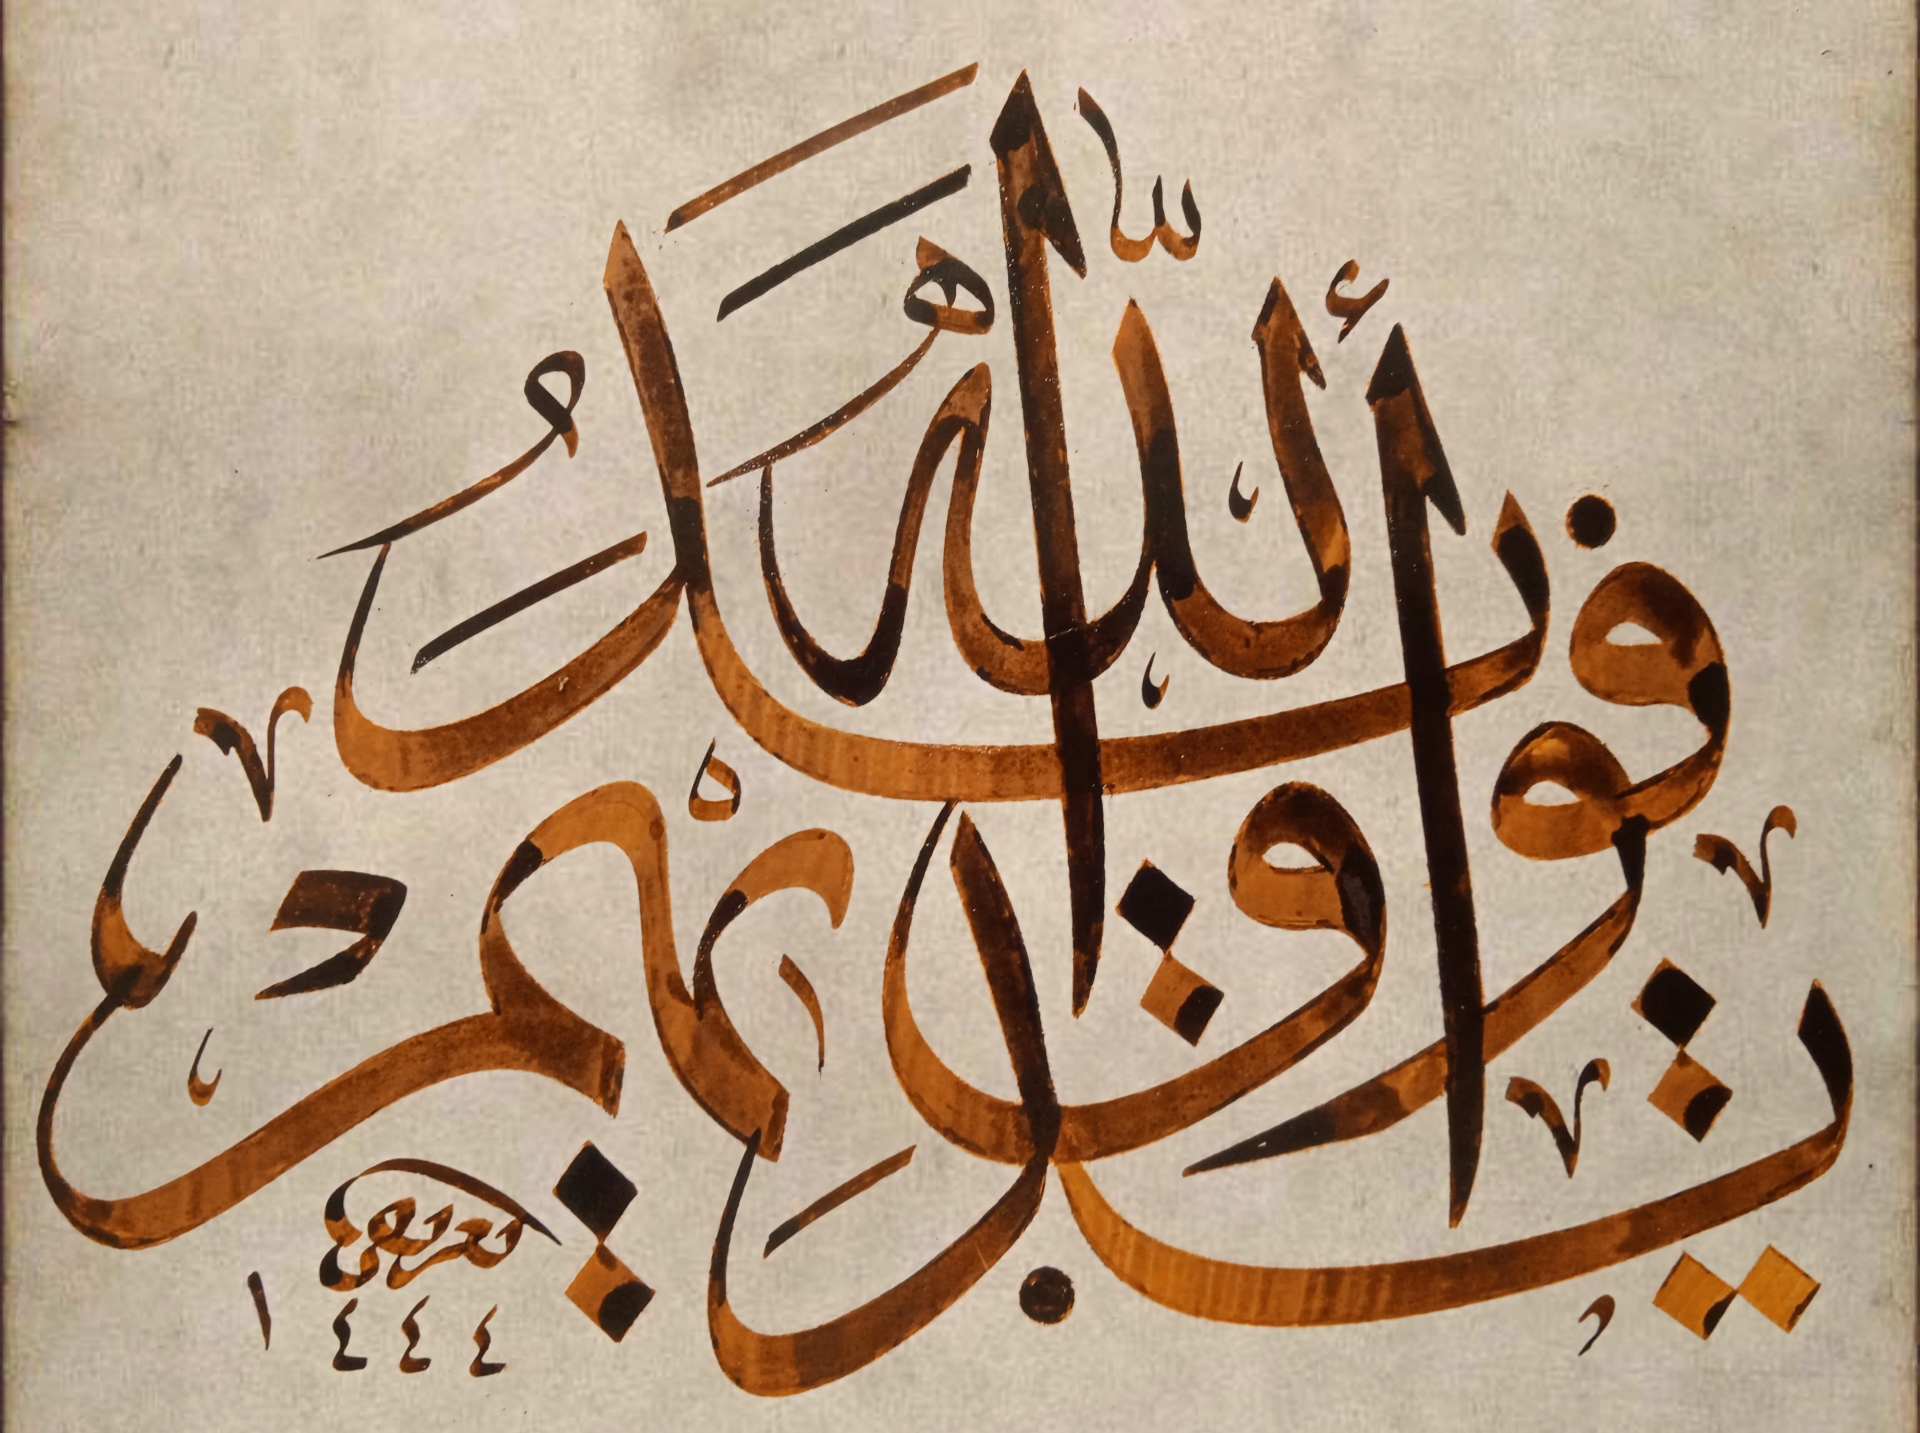 يَدُ ٱللَّهِ فَوْقَ أَيْدِيهِمْ
١٤٤٤